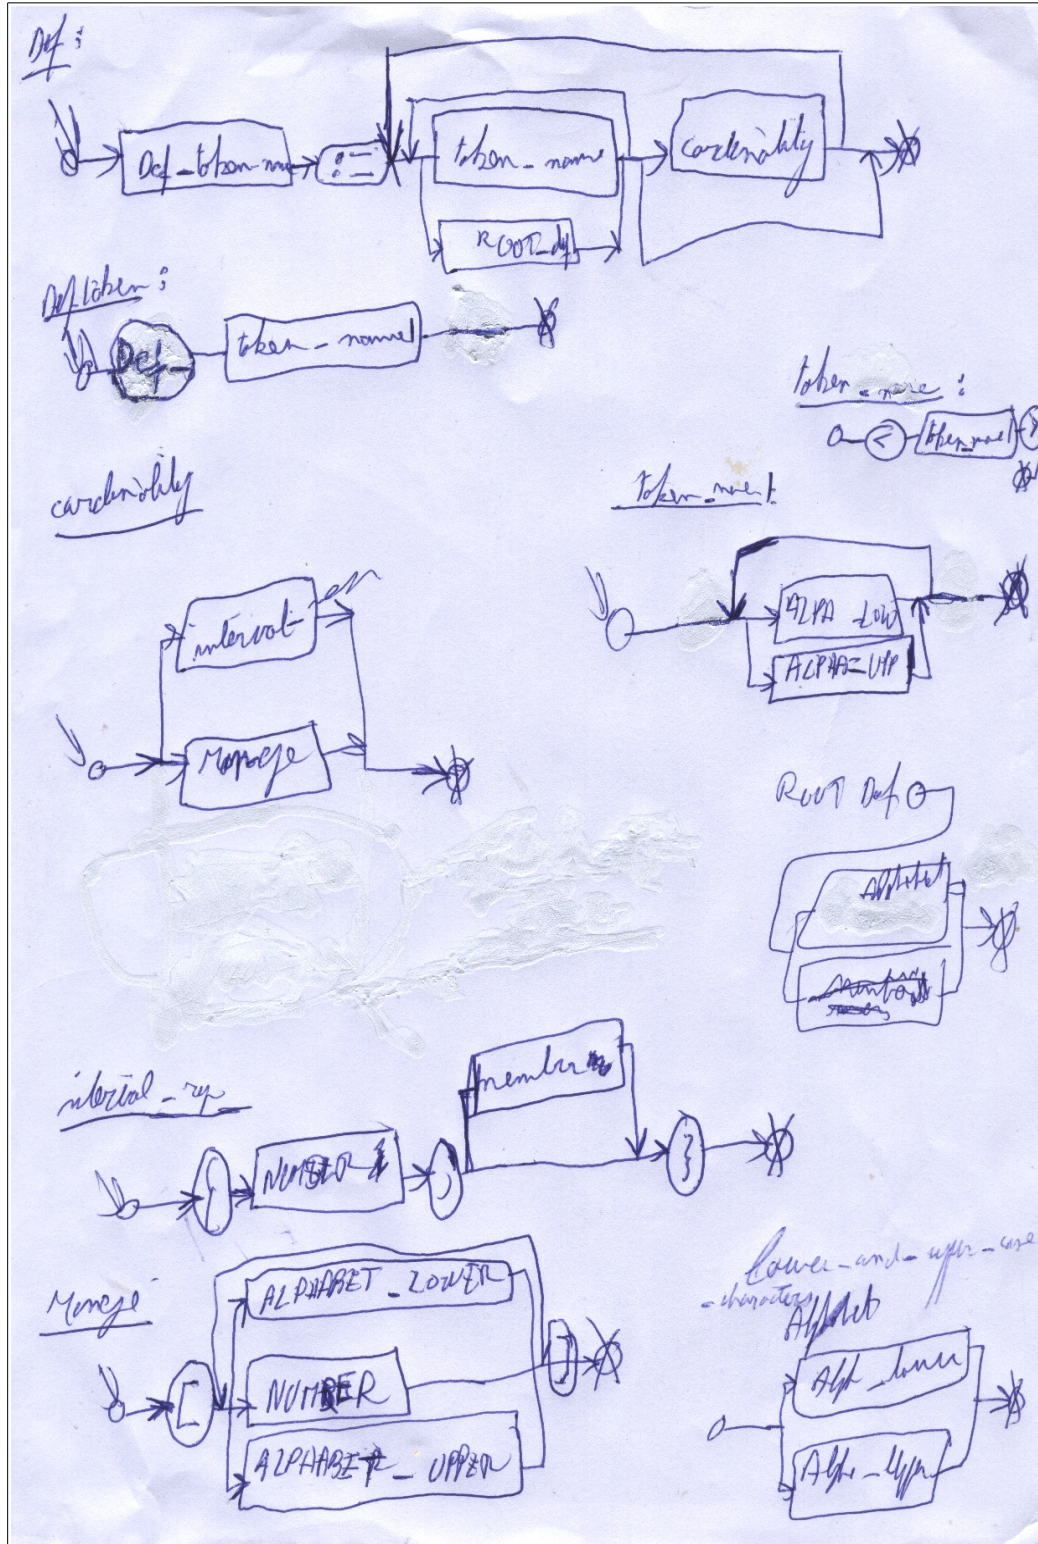 Def :
Def_token_name
: =
token_name
cardinality
ROOT_def
Def_token :
Def_
token_name1
token_name :
<
token_name1
>
cardinality
token_name1
interval_
ALPA_LOW
ALPHAZ_UPP
ROOT Def
Alphabet
interval_rep
{
NUMBER
,
number
}
[
ALPHABET_LOWER
NUMBER
ALPHABET_UPPER
]
Lower_and_upper_case
_characters
Alphabet
Alph_lower
Alph_Upper